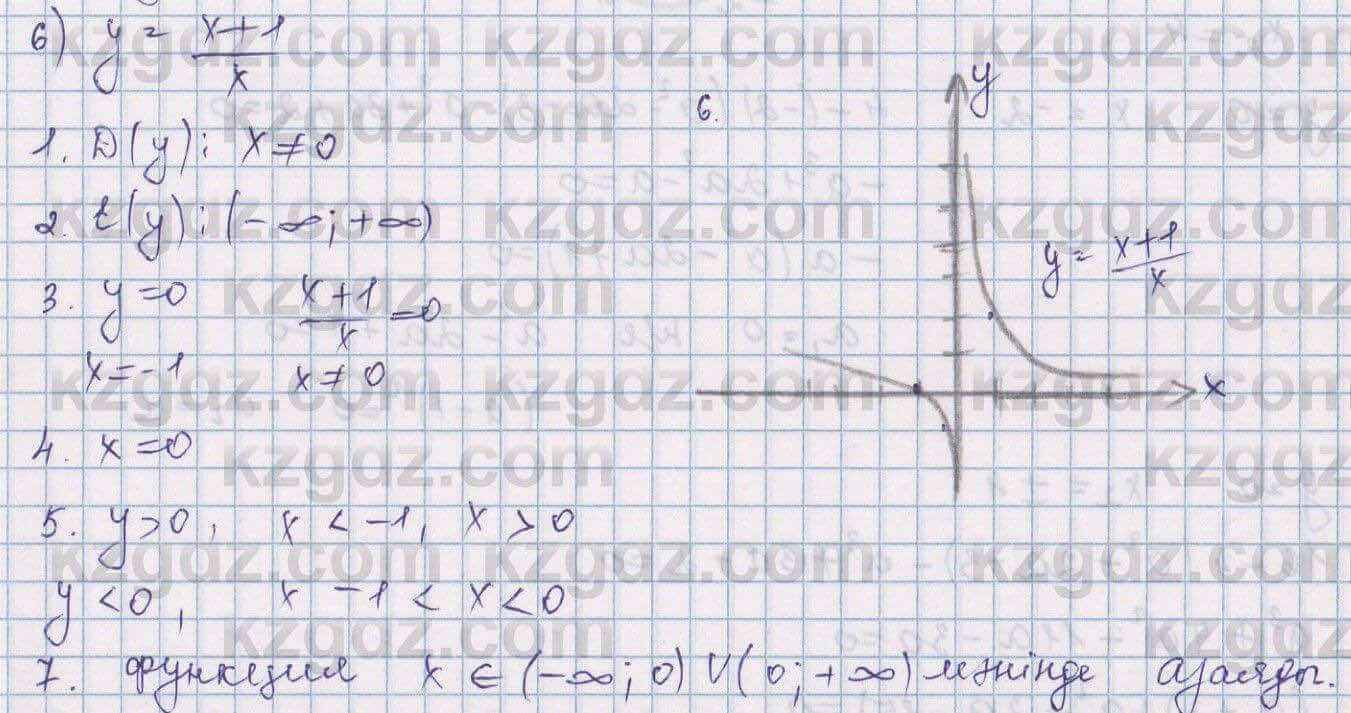 6) y = x+1/x
1. D(y): x ≠ 0
2. E(y): (-∞; +∞)
3. y=0 x+1/x =0
x=-1 x ≠ 0
4. x=0
5. y>0, x < -1, x > 0
y<0, x -1 < x < 0
7. функция x ∈ (-∞; 0) ∪ (0; +∞) мәнінде азаяды.
6.
y
y = x+1/x
x
kzgdz.com